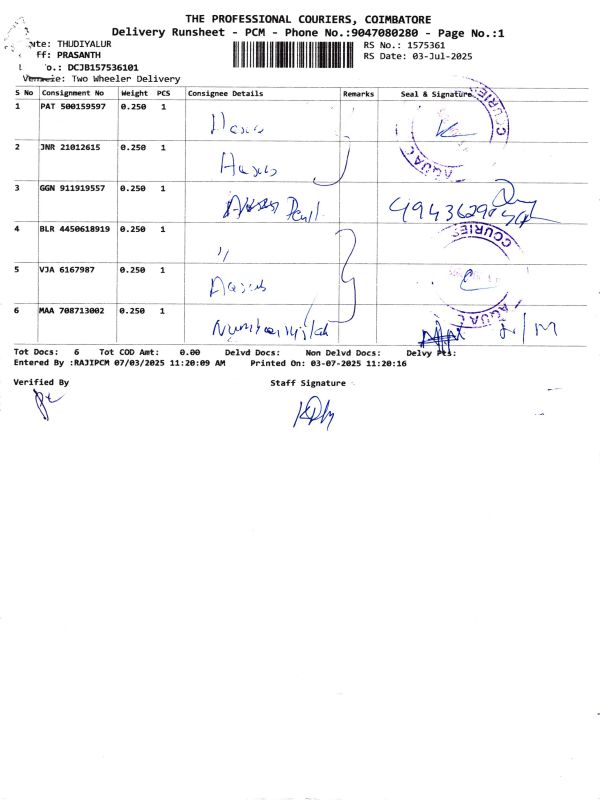 THE PROFESSIONAL COURIERS, COIMBATORE
Delivery Runsheet - PCM - Phone No.:9047080280 - Page No.:1
THUDIYALUR
RS No.: 1575361
PRASANTH
RS Date: 03-Jul-2025
DCJB157536101
Two Wheeler Delivery
S No Consignment No Weight PCS Consignee Details Remarks Seal & Signature
1 PAT 500159597 0.250 1
2 JNR 21012615 0.250 1
3 GGN 911919557 0.250 1
4 BLR 4450618919 0.250 1
〃
5 VJA 6167987 0.250 1
6 MAA 708713002 0.250 1
COURIE
AQUA
COURIES
AQUA
Tot Docs: 6 Tot COD Amt: 0.00 Delvd Docs: Non Delvd Docs: Delvy Pts:
Entered By :RAJIPCM 07/03/2025 11:20:09 AM Printed On: 03-07-2025 11:20:16
Verified By
Staff Signature